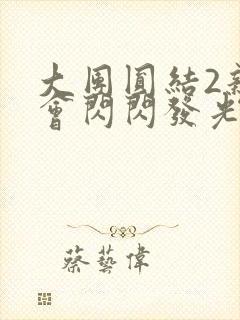 大團圓結2新
會閃閃發光
蔡藝偉